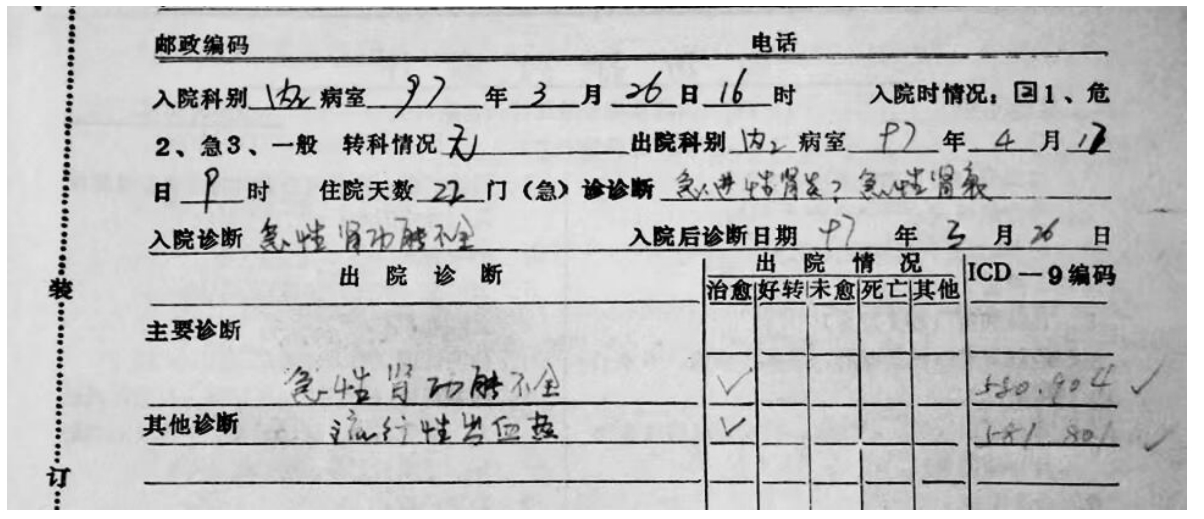 邮政编码 电话
入院科别 内2 病室 97 年 3 月 26 日 16 时 入院时情况：2 1、危
2、急3、一般 转科情况 无 出院科别 内2 病室 97 年 4 月 17
日 9 时 住院天数 22 门（急）诊诊断 急进性肾炎？急性肾衰
入院诊断 急性肾功能不全 入院后诊断日期 97 年 3 月 26 日
出院诊断 出院情况 ICD—9编码
治愈 好转 未愈 死亡 其他
主要诊断
急性肾功能不全 ✓ ✓
其他诊断 流行性出血热 ✓ ✓
装
订